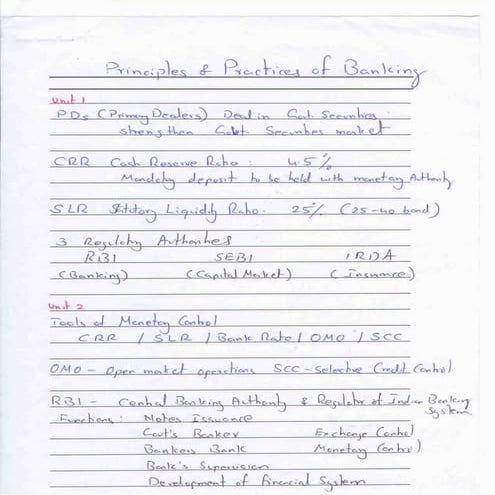 Principles & Practices of Banking
Unit 1
PDs (Primary Dealers) Deal in Govt Securities.
strengthen Govt. Securities market
CRR Cash Reserve Ratio: 4.5%
Mandatory deposit to be held with monetary Authority
SLR Statutory Liquidity Ratio. 25% (25-40 band)
3 Regulatory Authorities
RBI SEBI IRDA
(Banking) (Capital Market) (Insurance)
Unit 2
Tools of Monetary Control
CRR / SLR / Bank Rate / OMO / SCC
OMO - Open market operations SCC - Selective Credit Control
RBI - Central Banking Authority & Regulator of Indian Banking System
Functions: Notes Issuance
Govt's Banker Exchange Control
Bankers Bank Monetary Control)
Bank's Supervision
Development of Financial System